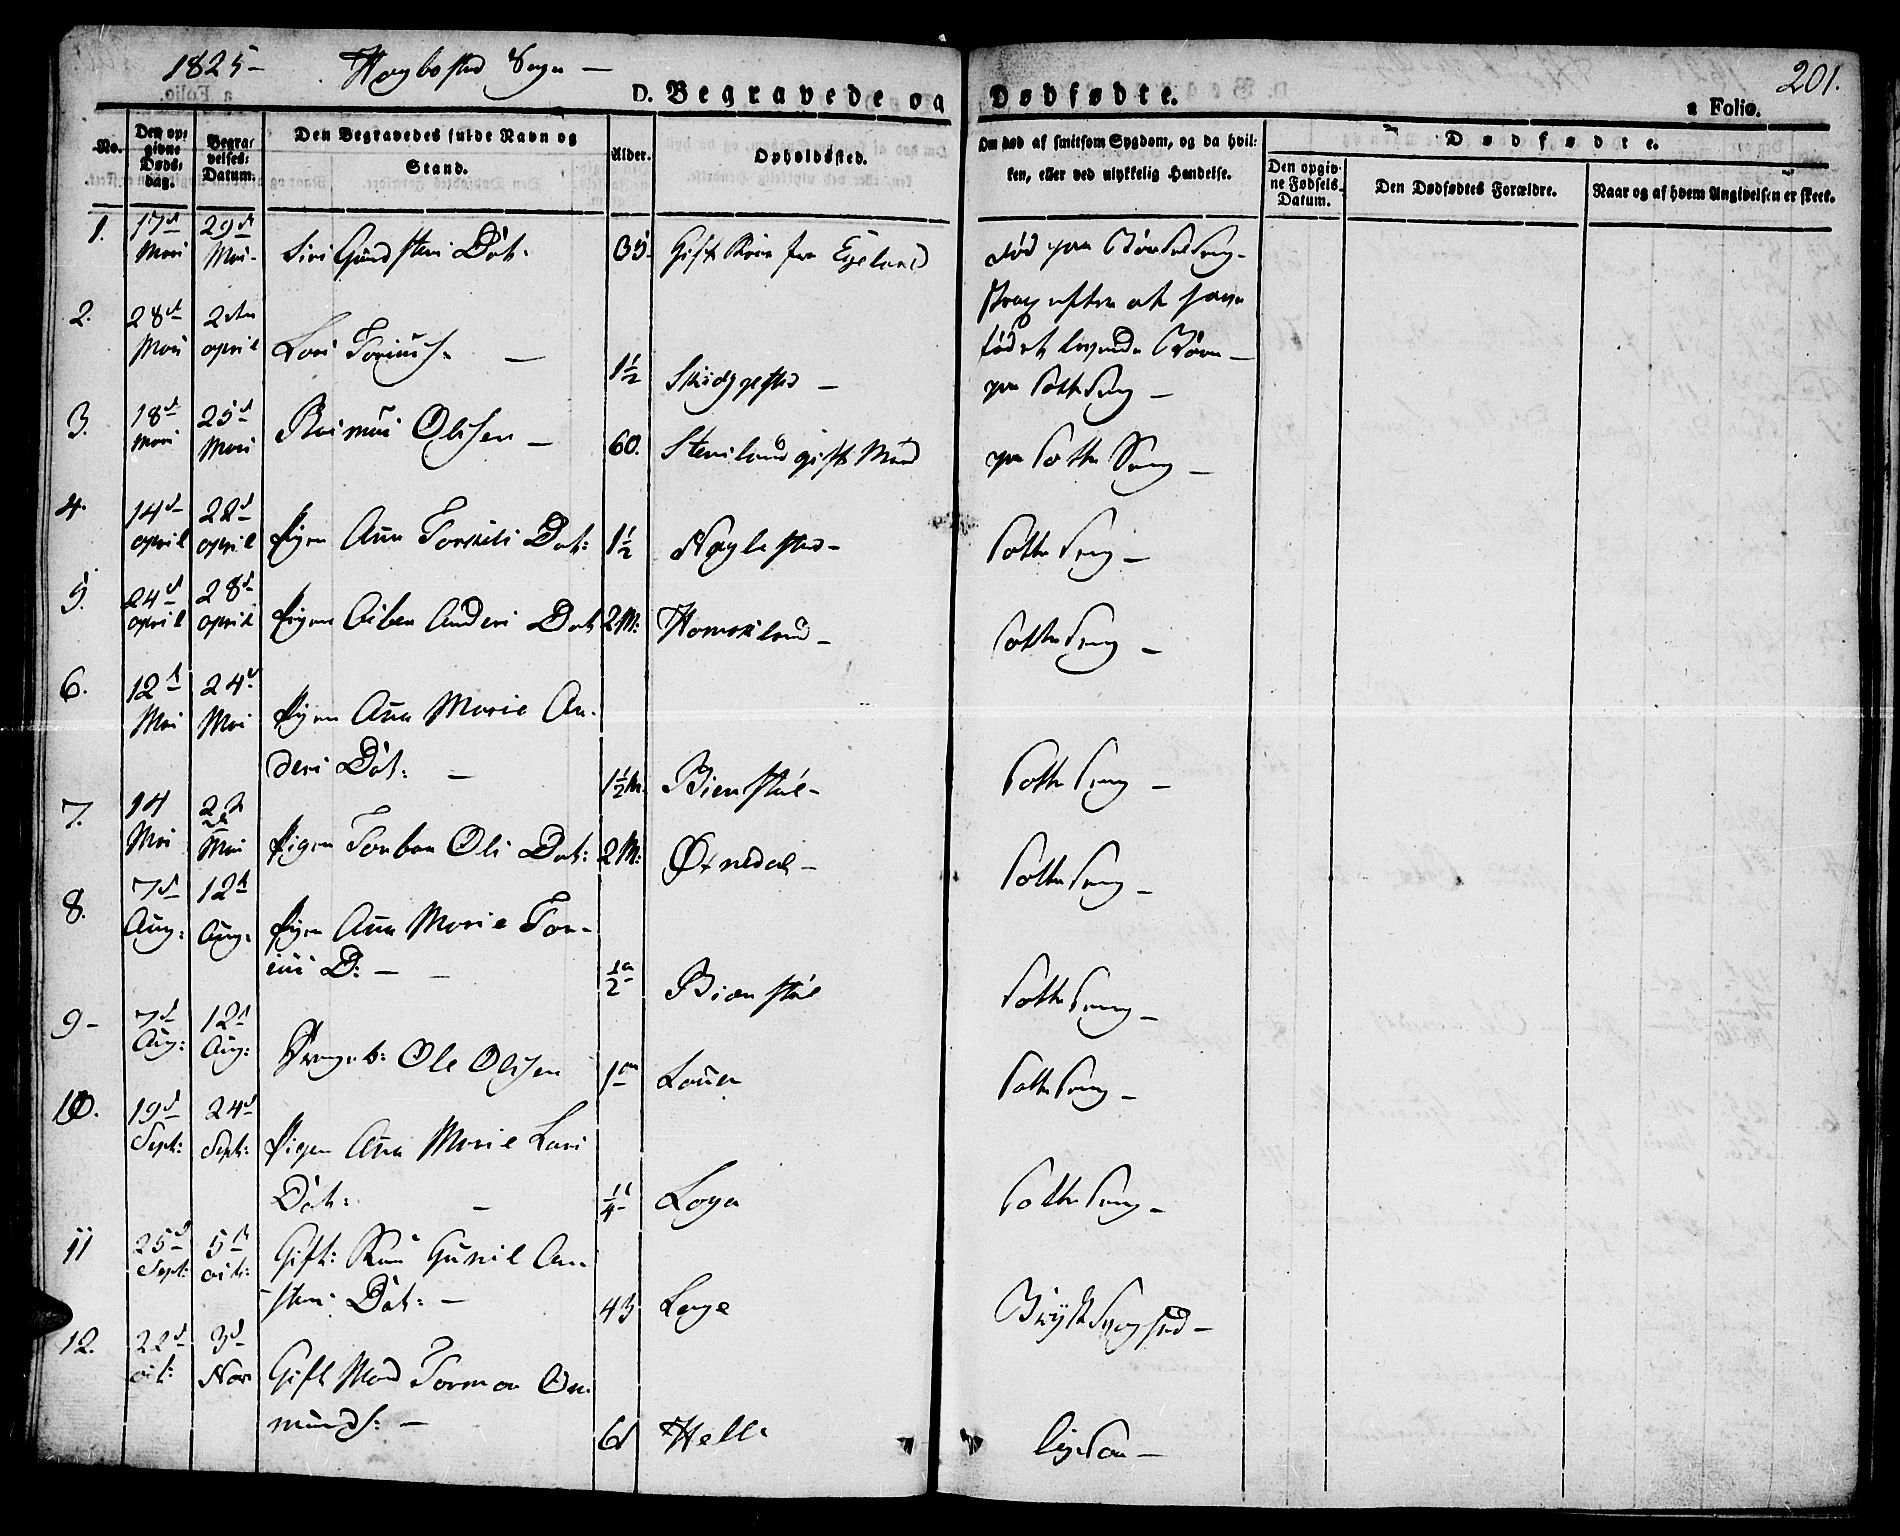 1825 - Hægbostad Sogn -
201.
D. Begravede og Dødfødte.
a Folio.
No.
Den opgivne Døds-dag.
Begravelses-Datum.
Den Begravedes fulde Navn og Stand.
Alder.
Opholdssted.
Om død af smitsom Sygdom, og da hvilken, eller ved ulykkelig Hændelse.
Dødfødte.
Den opgivne Fødsels-Datum.
Den Dødfødtes Forældre.
Naar og af hvem Angivelsen er skeet.
1. 17d Mai 29d Mai- Siri Gundsteni Dat: 35. Gift Kone fra Eyeland død paa Barselseng-
strax efter at have
født levende Børn -
2. 28d Mari 2den april Lars Toriiis. - 1½ Skeiggestad - paa Sotteseng -
3. 18d Mari 25d Mari Rasmus Olisen - 60. Stensland gift Mand paa Sotte Seng -
4. 14d april 22d april Pigen Ana Torkili Dat: 1½ Nøglestad - Sotteseng -
5. 24d april 28d april Pigen Aiben Anderi Dat 2M: Homsland - Sotteseng -
6. 12d Mai 24d Mai Pigen Ana Marie An-
deri Dat: - 1½M. Bienstøl - Sotteseng -
7. 14 Mai 22d Mai Pigen Torbor Oli Dat: 2M: Ørnedal - Sotteseng -
8. 7d Aug: 12d Aug: Pigen Ana Marie Tor-
iiii D: - - ½a Bienstøl Sotteseng -
9- 7d Aug: 12d Aug: Drengeb: Ole Olisen 1a Lauen Sotteseng -
10. 19d Sept: 24d Sept: Pigen Ana Marie Lari
Dat: - ¼ Loga Sotteseng -
11 25d Sept: 5d oct: Gift: Kone Gunil An-
steni Dat: - 43 Lage Brystsyge -
12. 22d oct: 3d Nov Gift Mand Tormon On-
munds: - 61 Helle ligesaa -